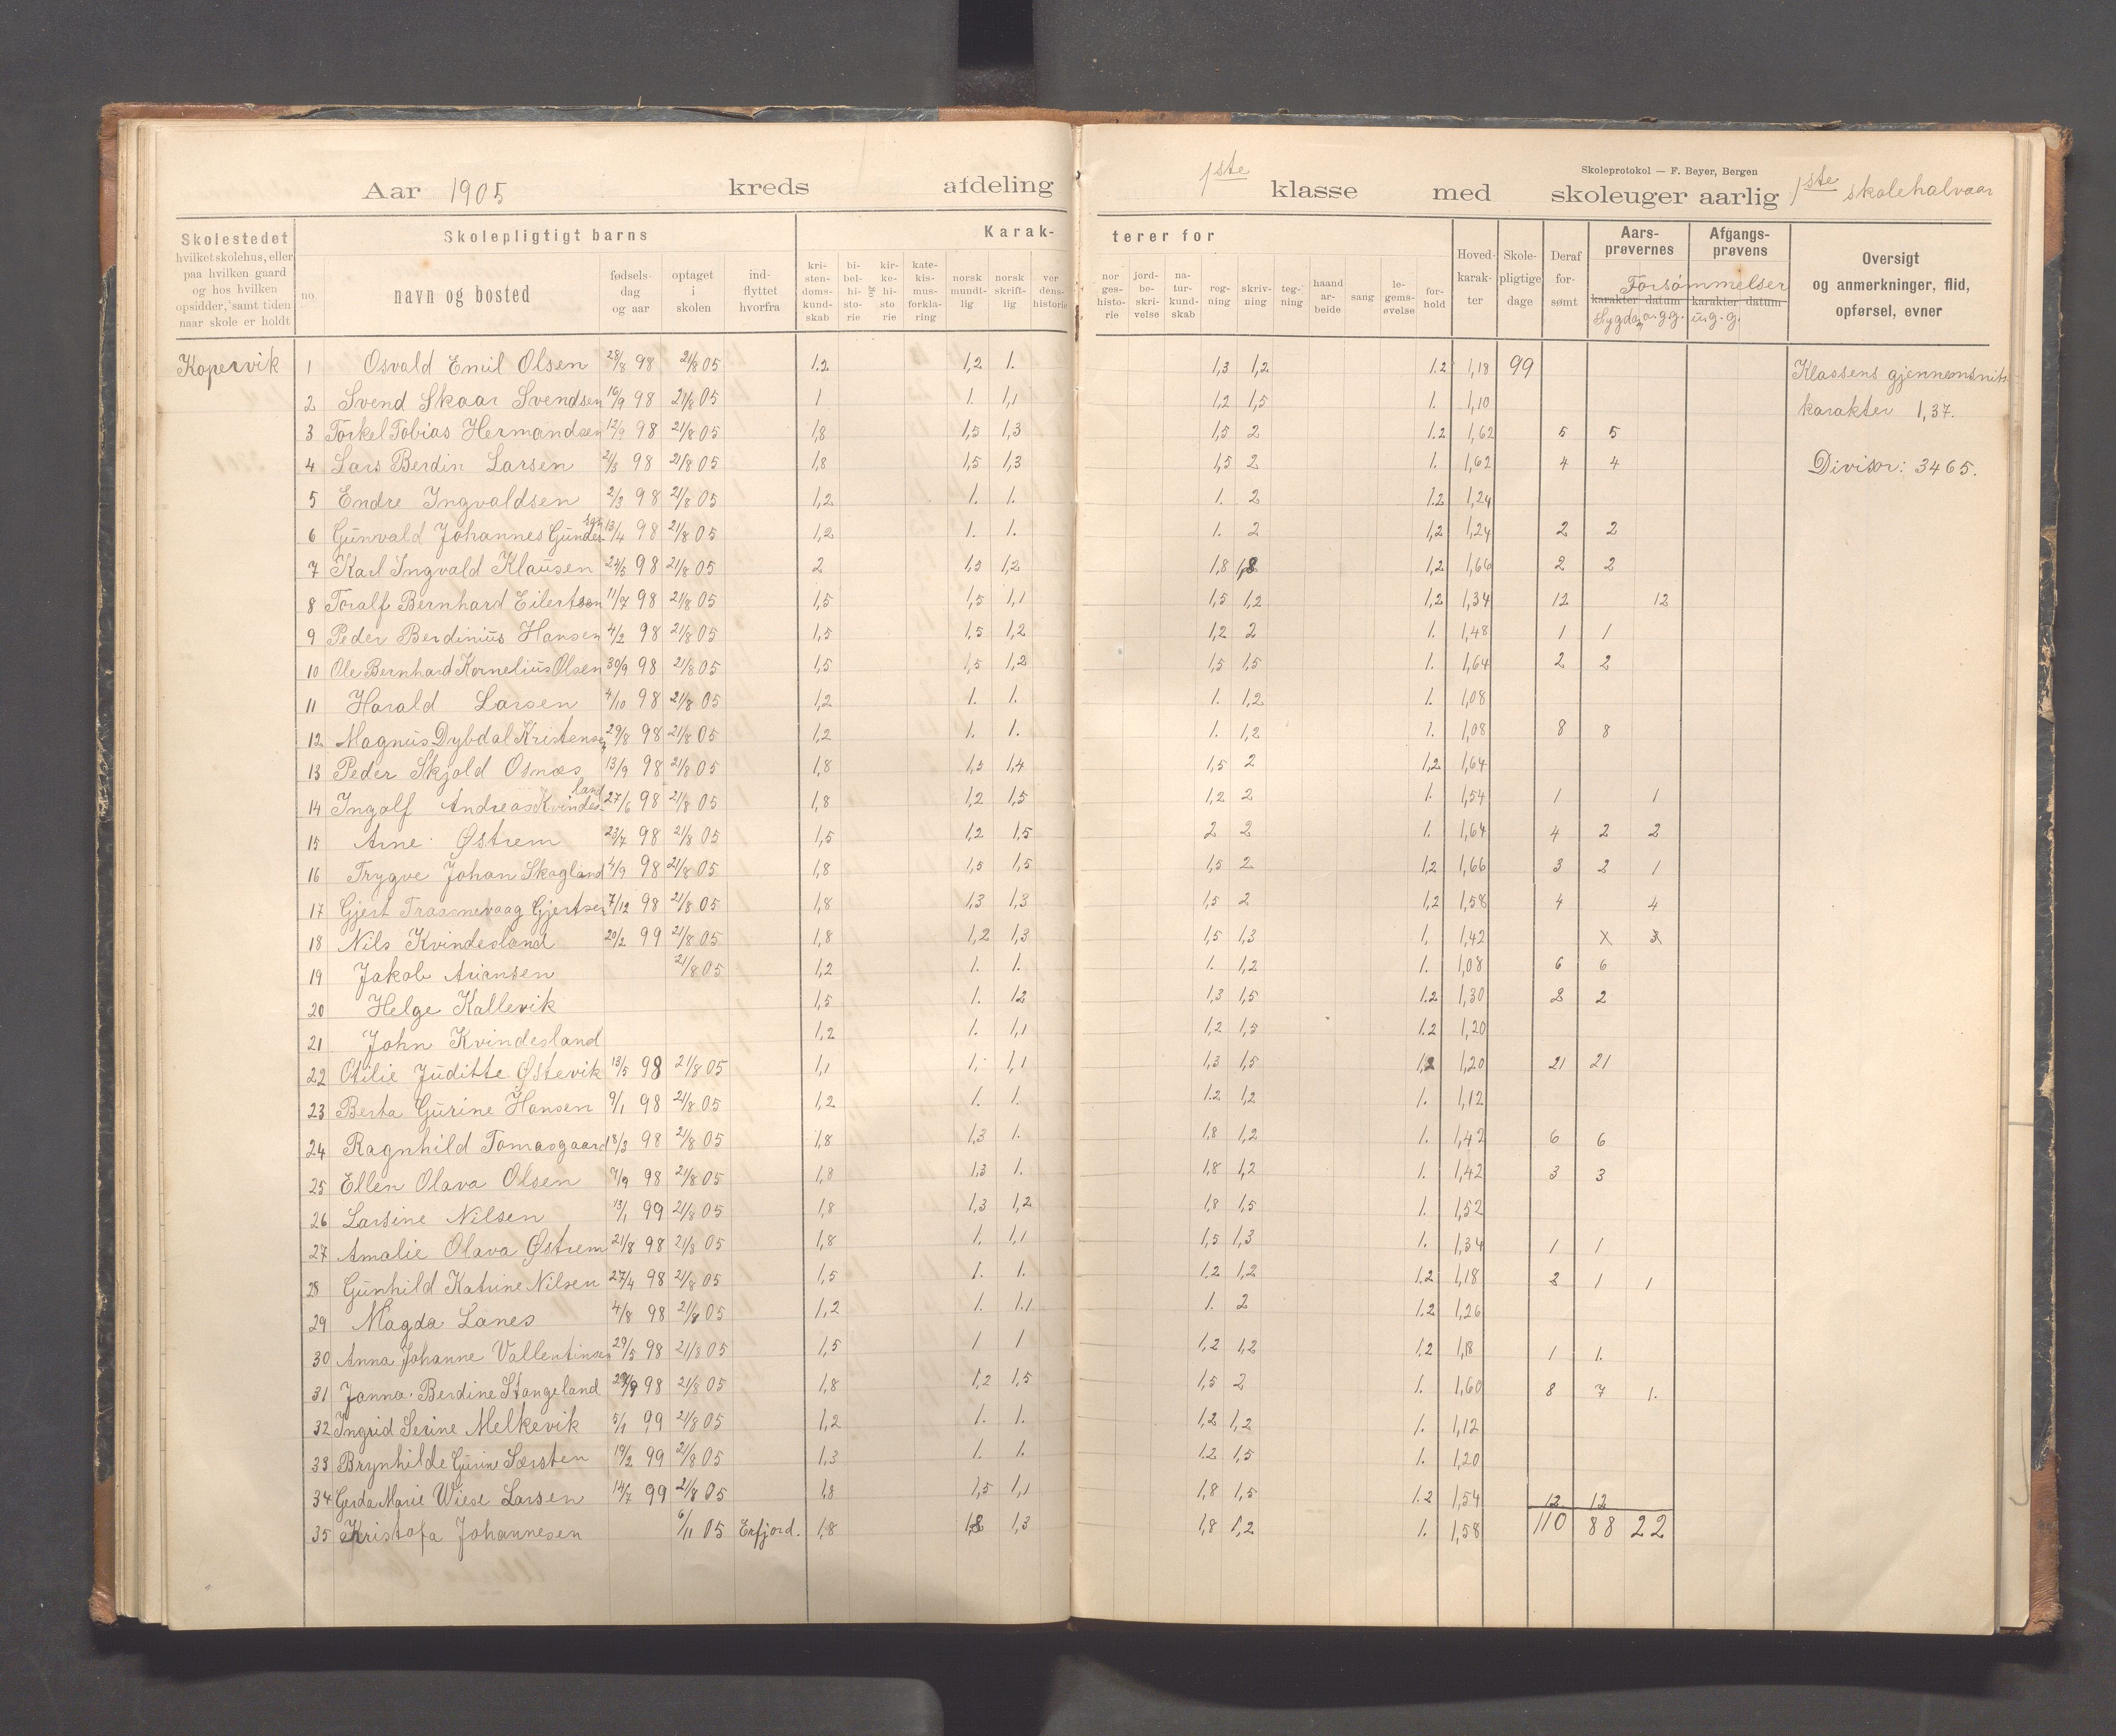 Skoleprotokol — F. Beyer, Bergen
Aar 1905 kreds afdeling 1ste klasse med skoleuger aarlig 1ste skolehalvaar
Skolestedet
hvilket skolehus, eller
paa hvilken gaard
og hos hvilken
opsidder, samt tiden
naar skole er holdt
Skolepligtigt barns
no.
navn og bosted
fødsels-
dag
og aar
optaget
i
skolen
ind-
flyttet
hvorfra
Karakterer for
kri-
sten-
doms-
kund-
skab
bi-
bel-
hi-
sto-
rie
og
kir-
ke-
hi-
sto
rie
kate-
kis-
mus-
forkla-
ring
norsk
mundt-
lig
norsk
skrift-
lig
ver
dens-
historie
nor
ges-
histo-
rie
jord-
be-
skri-
velse
na-
tur-
kund-
skab
reg-
ning
skriv-
ning
teg-
ning
haand
ar-
beide
sang
le-
gems-
øvelse
for-
hold
Hoved-
karak-
ter
Skole-
pligtige
dage
Deraf
for-
sømt
Aars-
prøvernes
Afgangs-
prøvens
Forsømmelser
karakter datum karakter datum
Sygd. a.g.g. u.g.g.
Oversigt
og anmerkninger, flid,
opførsel, evner
Kopervik 1 Osvald Emil Olsen 28/8 98 21/8 05 1.2 1,2 1. 1,3 1,2 1.2 1,18 99
Klassens gjennemsnits
karakter 1,37.
Divisor: 3465.
2 Svend Skaar Svendsen 16/9 98 21/8 05 1 1. 1,1 1,2 1,5 1. 1,10
3 Torkel Tobias Hermandsen 12/9 98 21/8 05 1,8 1,5 1,3 1,5 2 1.2 1,62 5 5
4 Lars Berdin Larsen 2/5 98 21/8 05 1,8 1,5 1,3 1,5 2 1. 1,62 4 4
5 Endre Ingvaldsen 2/3 98 21/8 05 1,2 1. 1. 1. 2 1.2 1,24
6 Gunvald Johannes Gundersen 13/4 98 21/8 05 1,2 1. 1. 1. 2 1,2 1,24 2 2
7 Karl Ingvald Klausen 24/5 98 21/8 05 2 1,5 1,2 1,8 1,8 1,2 1,66 2 2
8 Toralf Bernhard Eilertsen 11/7 98 21/8 05 1,5 1,5 1,1 1,5 1,2 1,2 1,34 12 12
9 Peder Berdinius Hansen 4/2 98 21/8 05 1,5 1,5 1,2 1,2 2 1. 1,48 1 1
10 Ole Bernhard Kornelius Olsen 30/9 98 21/8 05 1,5 1,5 1,2 1,5 1,5 1. 1,64 2 2
11 Harald Larsen 4/10 98 21/8 05 1,2 1. 1. 1. 1,2 1. 1,08
12 Magnus Dybdal Kristensen 29/8 98 21/8 05 1,2 1. 1. 1. 1,2 1. 1,08 8 8
13 Peder Skjold Osnæs 13/9 98 21/8 05 1,8 1,5 1,4 1,5 2 1,2 1,64
14 Ingolf Andreas Kvindesland 27/6 98 21/8 05 1,8 1,2 1,5 1,2 2 1. 1,54 1 1
15 Arne Østrem 23/7 98 21/8 05 1,5 1,2 1,5 2 2 1. 1,64 4 2 2
16 Trygve Johan Skogland 4/9 98 21/8 05 1,8 1,5 1,5 1,5 2 1,2 1,66 3 2 1
17 Gjert Trassnevaag Gjertsen 7/12 98 21/8 05 1,8 1,3 1,3 1,5 2 1,2 1,58 4 4
18 Nils Kvindesland 20/2 99 21/8 05 1,8 1,2 1,3 1,5 1,3 1, 1,42 x
19 Jakob 21/8 05 1,2 1. 1. 1. 1,2 1. 1,08 6 6
20 Helge Kallevik 1,5 1. 12 1,3 1,5 1.2 1,30 2 2
21 John Kvindesland 1,2 1. 1,1 1,2 1,5 1.2 1,20
22 Otilie Juditte Østevik 13/5 98 21/8 05 1,1 1, 1,1 1,3 1,5 1,2 1,20 21 21
23 Berta Gurine Hansen 9/1 98 21/8 05 1,2 1. 1. 1.2 1,2 1. 1,12
24 Ragnhild Tomasgaard 18/3 98 21/8 05 1,8 1,3 1. 1,8 1,2 1. 1,42 6 6
25 Ellen Olava Olsen 7/9 98 21/8 05 1,8 1,3 1. 1,8 1,2 1. 1,42 3 3
26 Larsine Nilsen 13/1 99 21/8 05 1,8 1,3 1,2 1,8 1,5 1. 1,52
27 Amalie Olava Østrem 21/8 98 21/8 05 1,8 1. 1,1 1,5 1,3 1. 1,34 1 1
28 Gunhild Katrine Nilsen 27/4 98 21/8 05 1,5 1. 1. 1.2 1,2 1.2 1,18 2 1 1
29 Magda Lanes 4/8 98 21/8 05 1,2 1. 1.1 1. 2 1.2 1,26
30 Anna Johanne Vallentinsen 29/5 98 21/8 05 1,5 1 1 1,2 1,2 1,2 1,18 1 1.
31 Janna Berdine Stangeland 98 21/8 05 1,8 1,2 1,5 1,5 2 1. 1,60 8 7 1.
32 Ingrid Serine Melkevik 5/1 99 21/8 05 1,2 1. 1. 1,2 1,2 1. 1,12
33 Brynhilde Gurine Sørsten 19/2 99 21/8 05 1,3 1. 1. 1.2 1,5 1. 1,20
34 Gerda Marie Wiese Larsen 14/7 99 21/8 05 1,8 1,5 1,1 1,8 1,5 1.2 1,54 12 12
35 Kristofa Johannesen 6/11 05 Erfjord. 1,8 1,8 1,3 1,8 1,2 1. 1,58 110 88 22